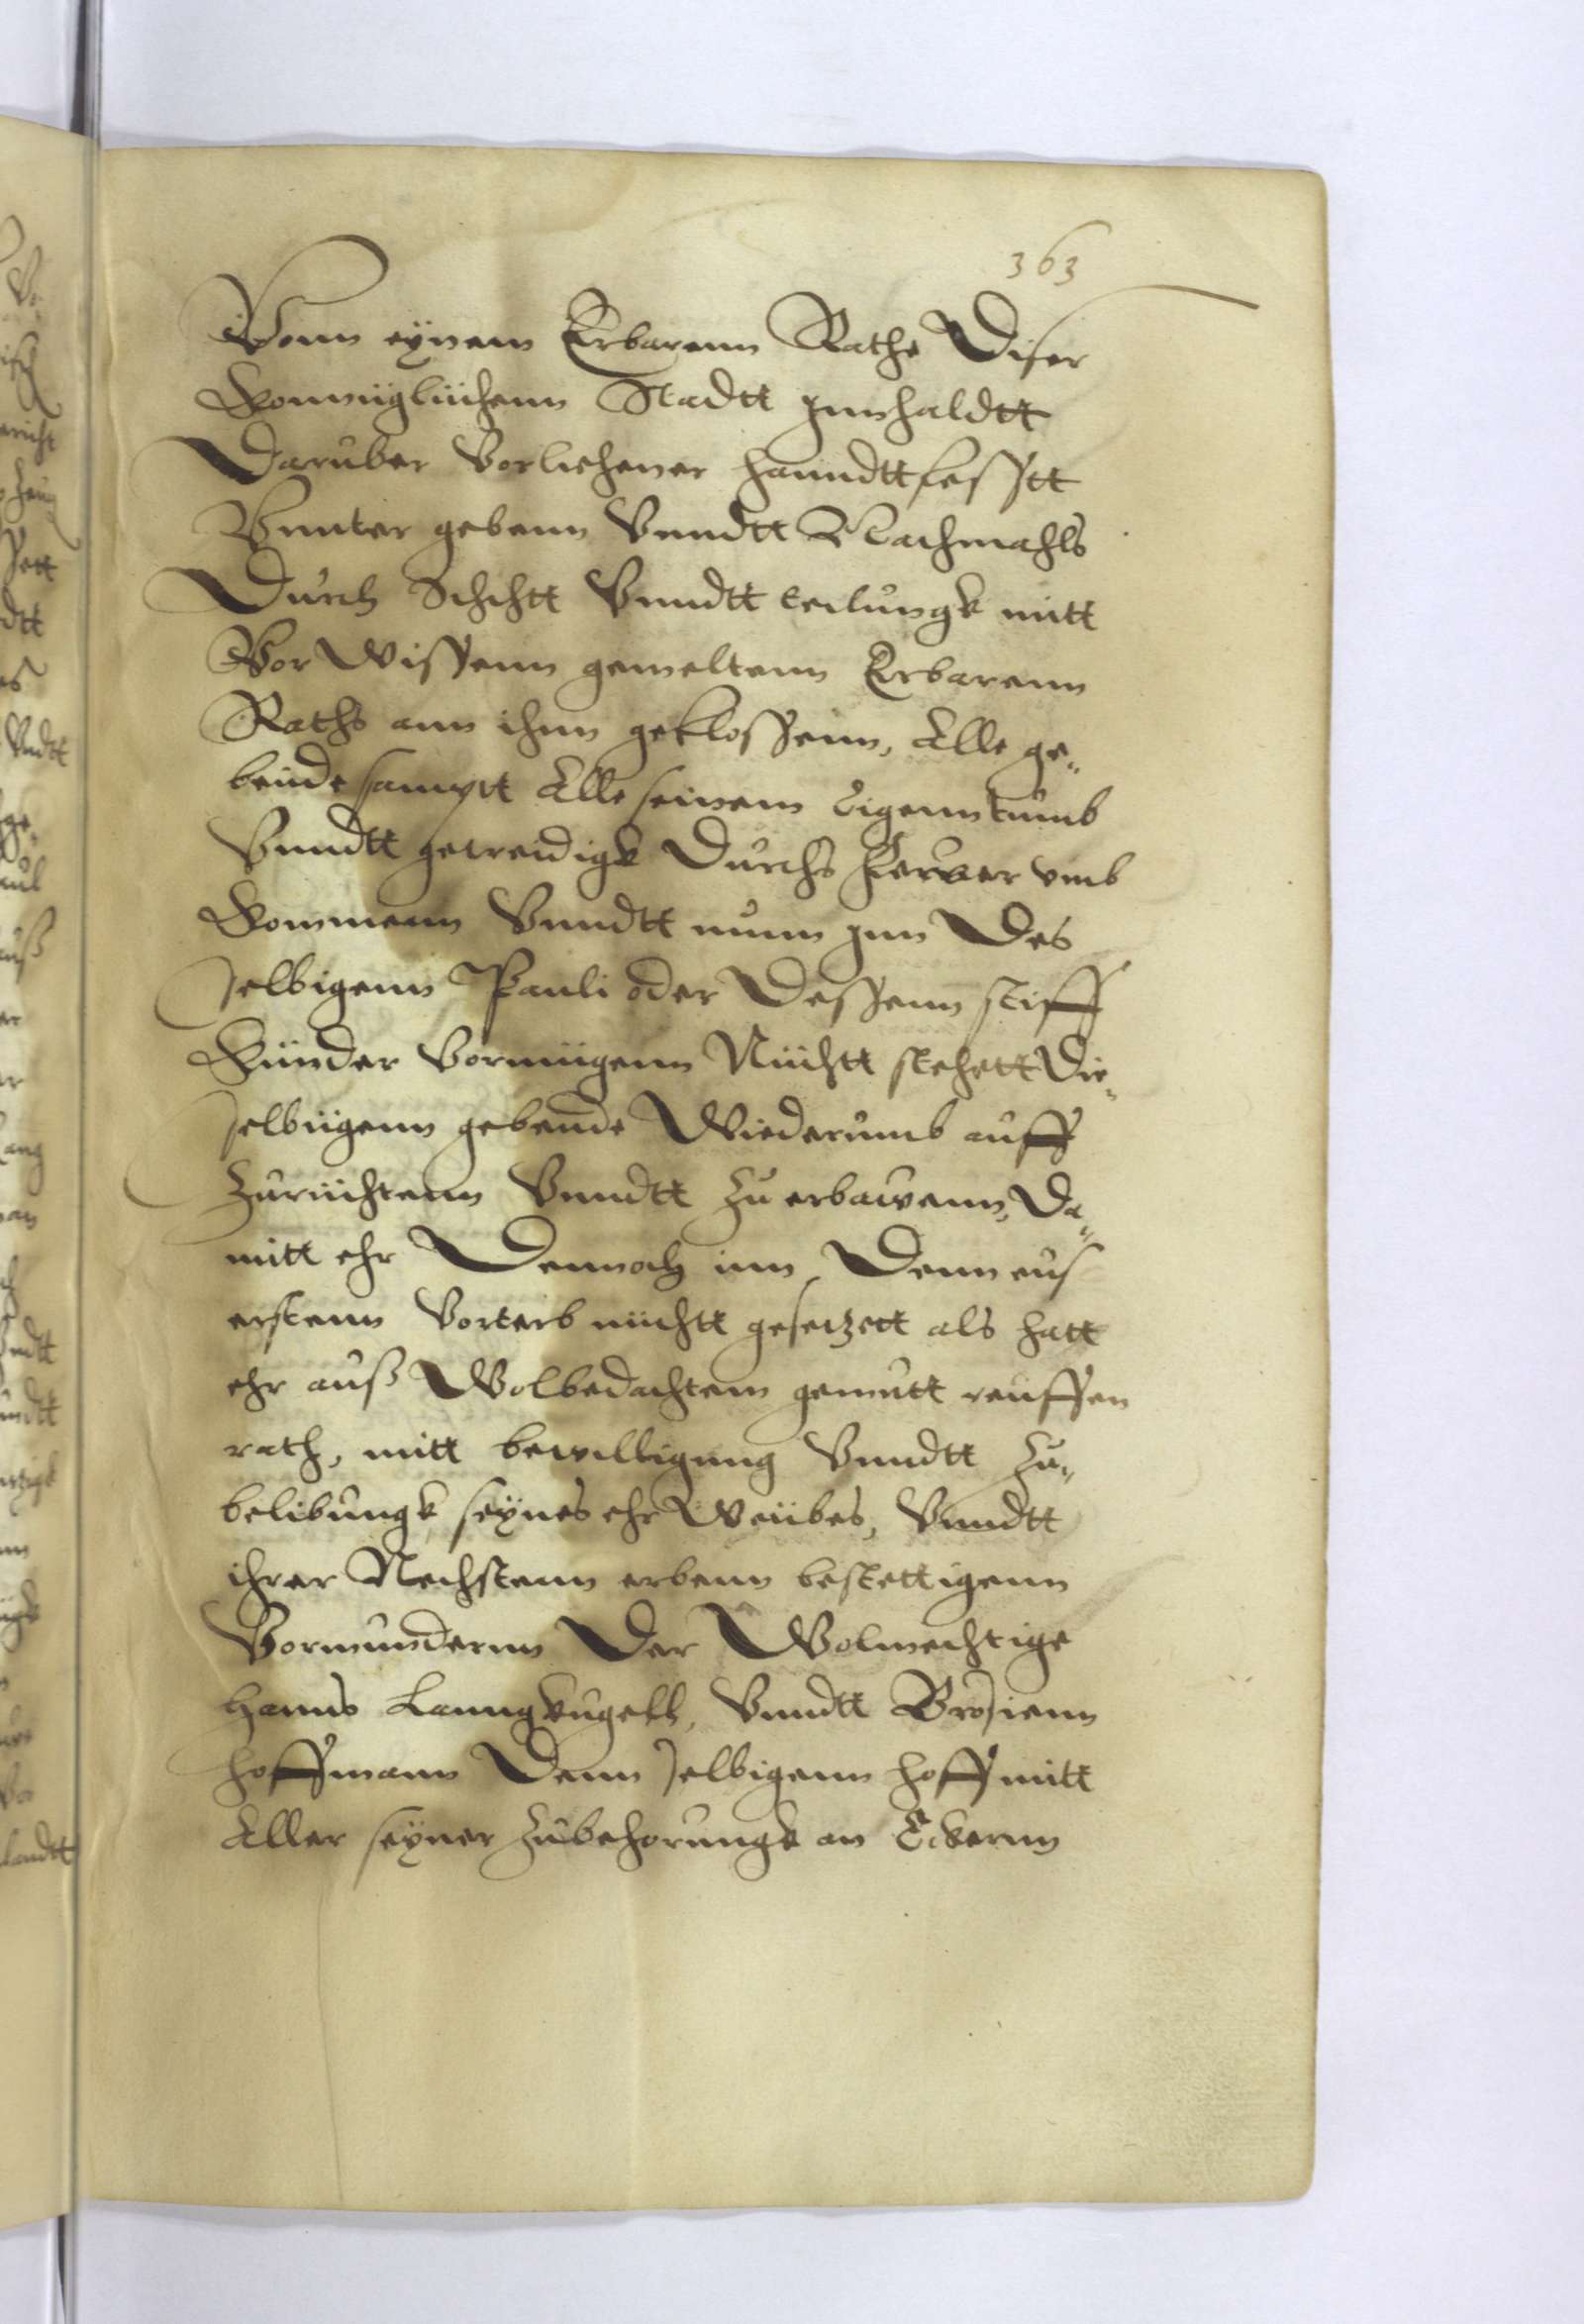 363
Vonn eÿnem Erbarenn Rathe Diser
Konniiglüchenn Stadtt jnnhaldtt
Daruber Vorliehener Hanndttfesstt
Vnnter gebenn Vnndtt Nachmahls
Durch Schichtt Vnndtt teilungk mitt
Vor Wissenn gemeltenn Erbarenn
Raths ann ihnn geklossenn, Alle ge„
beude samptt Alle seinem Eigenntumb
Vnndtt getreidigk Durchs fewer vmb
Kommenn Vnndtt nunn jnn Des
selbigenn Pauli oder Dessenn stiff
Künder Vormiigenn Nüichtt stehett Die„
selbiigenn gebeude Wiederumb auff
Zuriichtenn Vnndtt Zu erbawenn, Da„
mitt ehr Dennoch inn Denn eus
erstenn Vorterb nüchtt gesetzett als hatt
ehr auß Wolbedachtem gemutt reuffen
rath, mitt bewilligung Vnndtt Zu„
belibungk seÿnes ehr Weiibes, Vnndtt
ihrer Nechstenn erbenn bestettigenn
Vormundernn Der Wolmechtige
Hanns Lanngkugell, Vnndtt Brosienn
Hoffmann Denn selbigenn Hoff mitt
Aller seÿner Zubehorungk an Eckernn